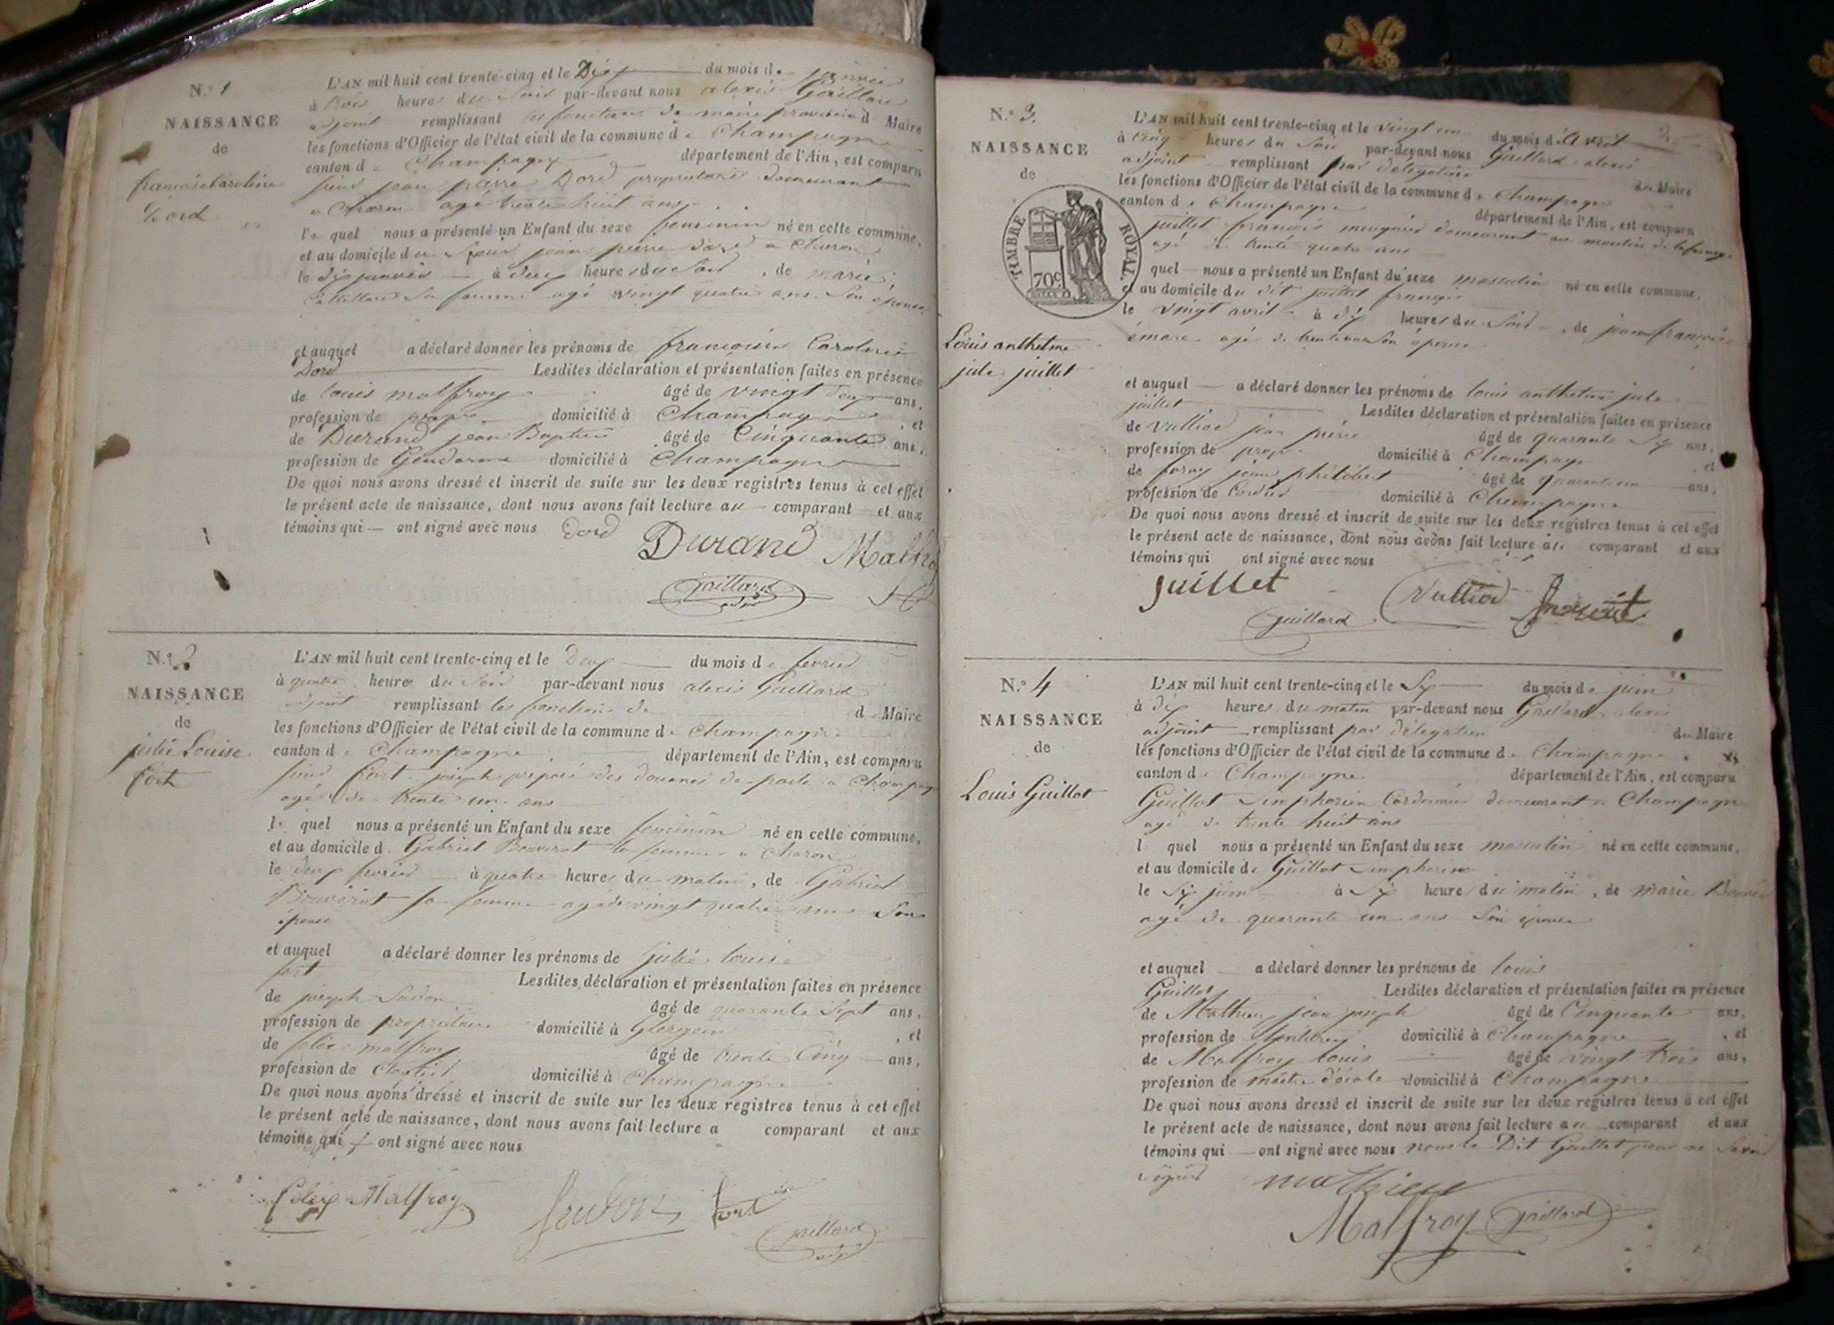 N.º 1
NAISSANCE
de
francoise Caroline
Dord
L'AN mil huit cent trente-cinq et le Dix du mois de janvier
à trois heures du soir par-devant nous alexis Gaillard
adjoint remplissant les fonctions de maire provisoire d Maire
les fonctions d'Officier de l'état civil de la commune de Champagne
canton de Champagne département de l'Ain, est comparu
sieur jean pierre Dord propriétaire demeurant
a Charon agé trente huit ans
le quel nous a présenté un Enfant du sexe feminin né en cette commune,
et au domicile du sieur jean pierre Dord a Charon
le dix janvier à deux heures du soir, de marie
Gaillard sa femme agé vingt quatre ans son épouse
et auquel a déclaré donner les prénoms de francoise Caroline
Dord Lesdites déclaration et présentation faites en présence
de louis malfroy âgé de vingt deux ans,
profession de propre domicilié à Champagne, et
de Durand jean Baptiste âgé de Cinquante ans,
profession de Gendarme domicilié à Champagne
De quoi nous avons dressé et inscrit de suite sur les deux registres tenus à cet effet
le présent acte de naissance, dont nous avons fait lecture au comparant et aux
témoins qui ont signé avec nous Dord
Durand Malfro
gaillard
N.º 2
NAISSANCE
de
julie Louise
fort
L'AN mil huit cent trente-cinq et le Deux du mois de fevrier
à quatre heures du soir par-devant nous alexis Gaillard
adjoint remplissant les fonctions de d Maire
les fonctions d'Officier de l'état civil de la commune de Champagne
canton de Champagne département de l'Ain, est comparu
sieur fort joseph preposé des douanes de poste a Champagne
agé de trente un ans
le quel nous a présenté un Enfant du sexe feminin né en cette commune,
et au domicile d Gabriel Bouverot sa femme a Charon
le deux fevrier à quatre heures du matin, de Gabriel
Bouverot sa femme agé de vingt quatre ans son
épouse
et auquel a déclaré donner les prénoms de julie louise
fort Lesdites déclaration et présentation faites en présence
de joseph âgé de quarante sept ans,
profession de propriétaire domicilié à, et
de felix malfroy âgé de trente Cinq ans,
profession de domicilié à Champagne
De quoi nous avons dressé et inscrit de suite sur les deux registres tenus à cet effet
le présent acte de naissance, dont nous avons fait lecture a comparant et aux
témoins qui ont signé avec nous
felix Malfroy fort
gaillard
N.º 3.
NAISSANCE
de
TIMBRE ROYAL
70 c
Louis anthelme
jule juillet
L'AN mil huit cent trente-cinq et le vingt un du mois d'avril
à cinq heures du soir par-devant nous Gaillard alexis
adjoint remplissant par délégation du Maire
les fonctions d'Officier de l'état civil de la commune de Champagne
canton de Champagne département de l'Ain, est comparu
juillet francois demeurant au moulin de
agé de trente quatre ans
quel nous a présenté un Enfant du sexe masculin né en cette commune,
et au domicile du dit juillet françois
le vingt avril à dix heures du soir, de jeanne françoise
agé de son épouse
et auquel a déclaré donner les prénoms de louis anthelme jule
juillet Lesdites déclaration et présentation faites en présence
de Vulliod jean pierre âgé de quarante six ans,
profession de propre domicilié à Champagne, et
de jean philibert âgé de ans,
profession de domicilié à Champagne
De quoi nous avons dressé et inscrit de suite sur les deux registres tenus à cet effet
le présent acte de naissance, dont nous avons fait lecture au comparant et aux
témoins qui ont signé avec nous
juillet Vulliod
gaillard
N.º 4
NAISSANCE
de
Louis Guillot
L'AN mil huit cent trente-cinq et le Six du mois de juin
à dix heures du matin par-devant nous Gaillard alexis
adjoint remplissant par délégation du Maire
les fonctions d'Officier de l'état civil de la commune de Champagne
canton de Champagne département de l'Ain, est comparu
Guillot simphorien Cordonnier demeurant a Champagne
agé de trente huit ans
l quel nous a présenté un Enfant du sexe masculin né en cette commune,
et au domicile de Guillot simphorien
le Six juin à six heure du matin, de marie
agé de quarante un ans son épouse
et auquel a déclaré donner les prénoms de louis
Guillot Lesdites déclaration et présentation faites en présence
de Mathieu jean joseph âgé de Cinquante ans,
profession de domicilié à Champagne, et
de Malfroy louis âgé de vingt trois ans,
profession de maitre d'école domicilié à Champagne
De quoi nous avons dressé et inscrit de suite sur les deux registres tenus à cet effet
le présent acte de naissance, dont nous avons fait lecture au comparant et aux
témoins qui ont signé avec nous non le Dit Guillot pour ne savoir
signer mathieu
Malfroy gaillard